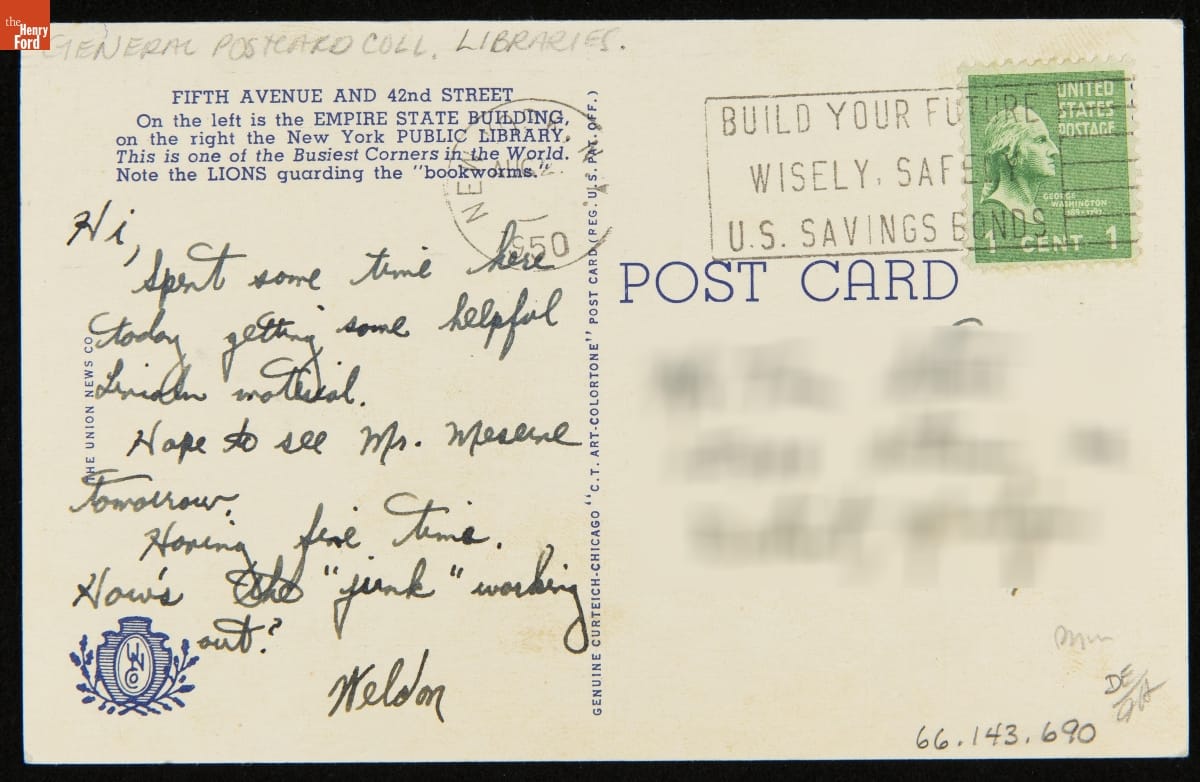 the
Henry
Ford
GENERAL POSTCARD COLL. LIBRARIES.
FIFTH AVENUE AND 42nd STREET
On the left is the EMPIRE STATE BUILDING,
on the right the New York PUBLIC LIBRARY.
This is one of the Busiest Corners in the World.
Note the LIONS guarding the "bookworms."
Hi,
Spent some time here
today getting some helpful
Lincoln material.
Hope to see Mr. Meserve
tomorrow.
Having fine time.
How's the "junk" working
out?
Weldon
THE UNION NEWS CO.
UNCo
GENUINE CURTEICH-CHICAGO "C.T. ART-COLORTONE" POST CARD (REG. U.S. PAT. OFF.)
NEW
AUG
1950
BUILD YOUR FUTURE
WISELY, SAFELY
U.S. SAVINGS BONDS
UNITED
STATES
POSTAGE
GEORGE
WASHINGTON
1789-1797
1 CENT 1
POST CARD
DE/
66.143.690